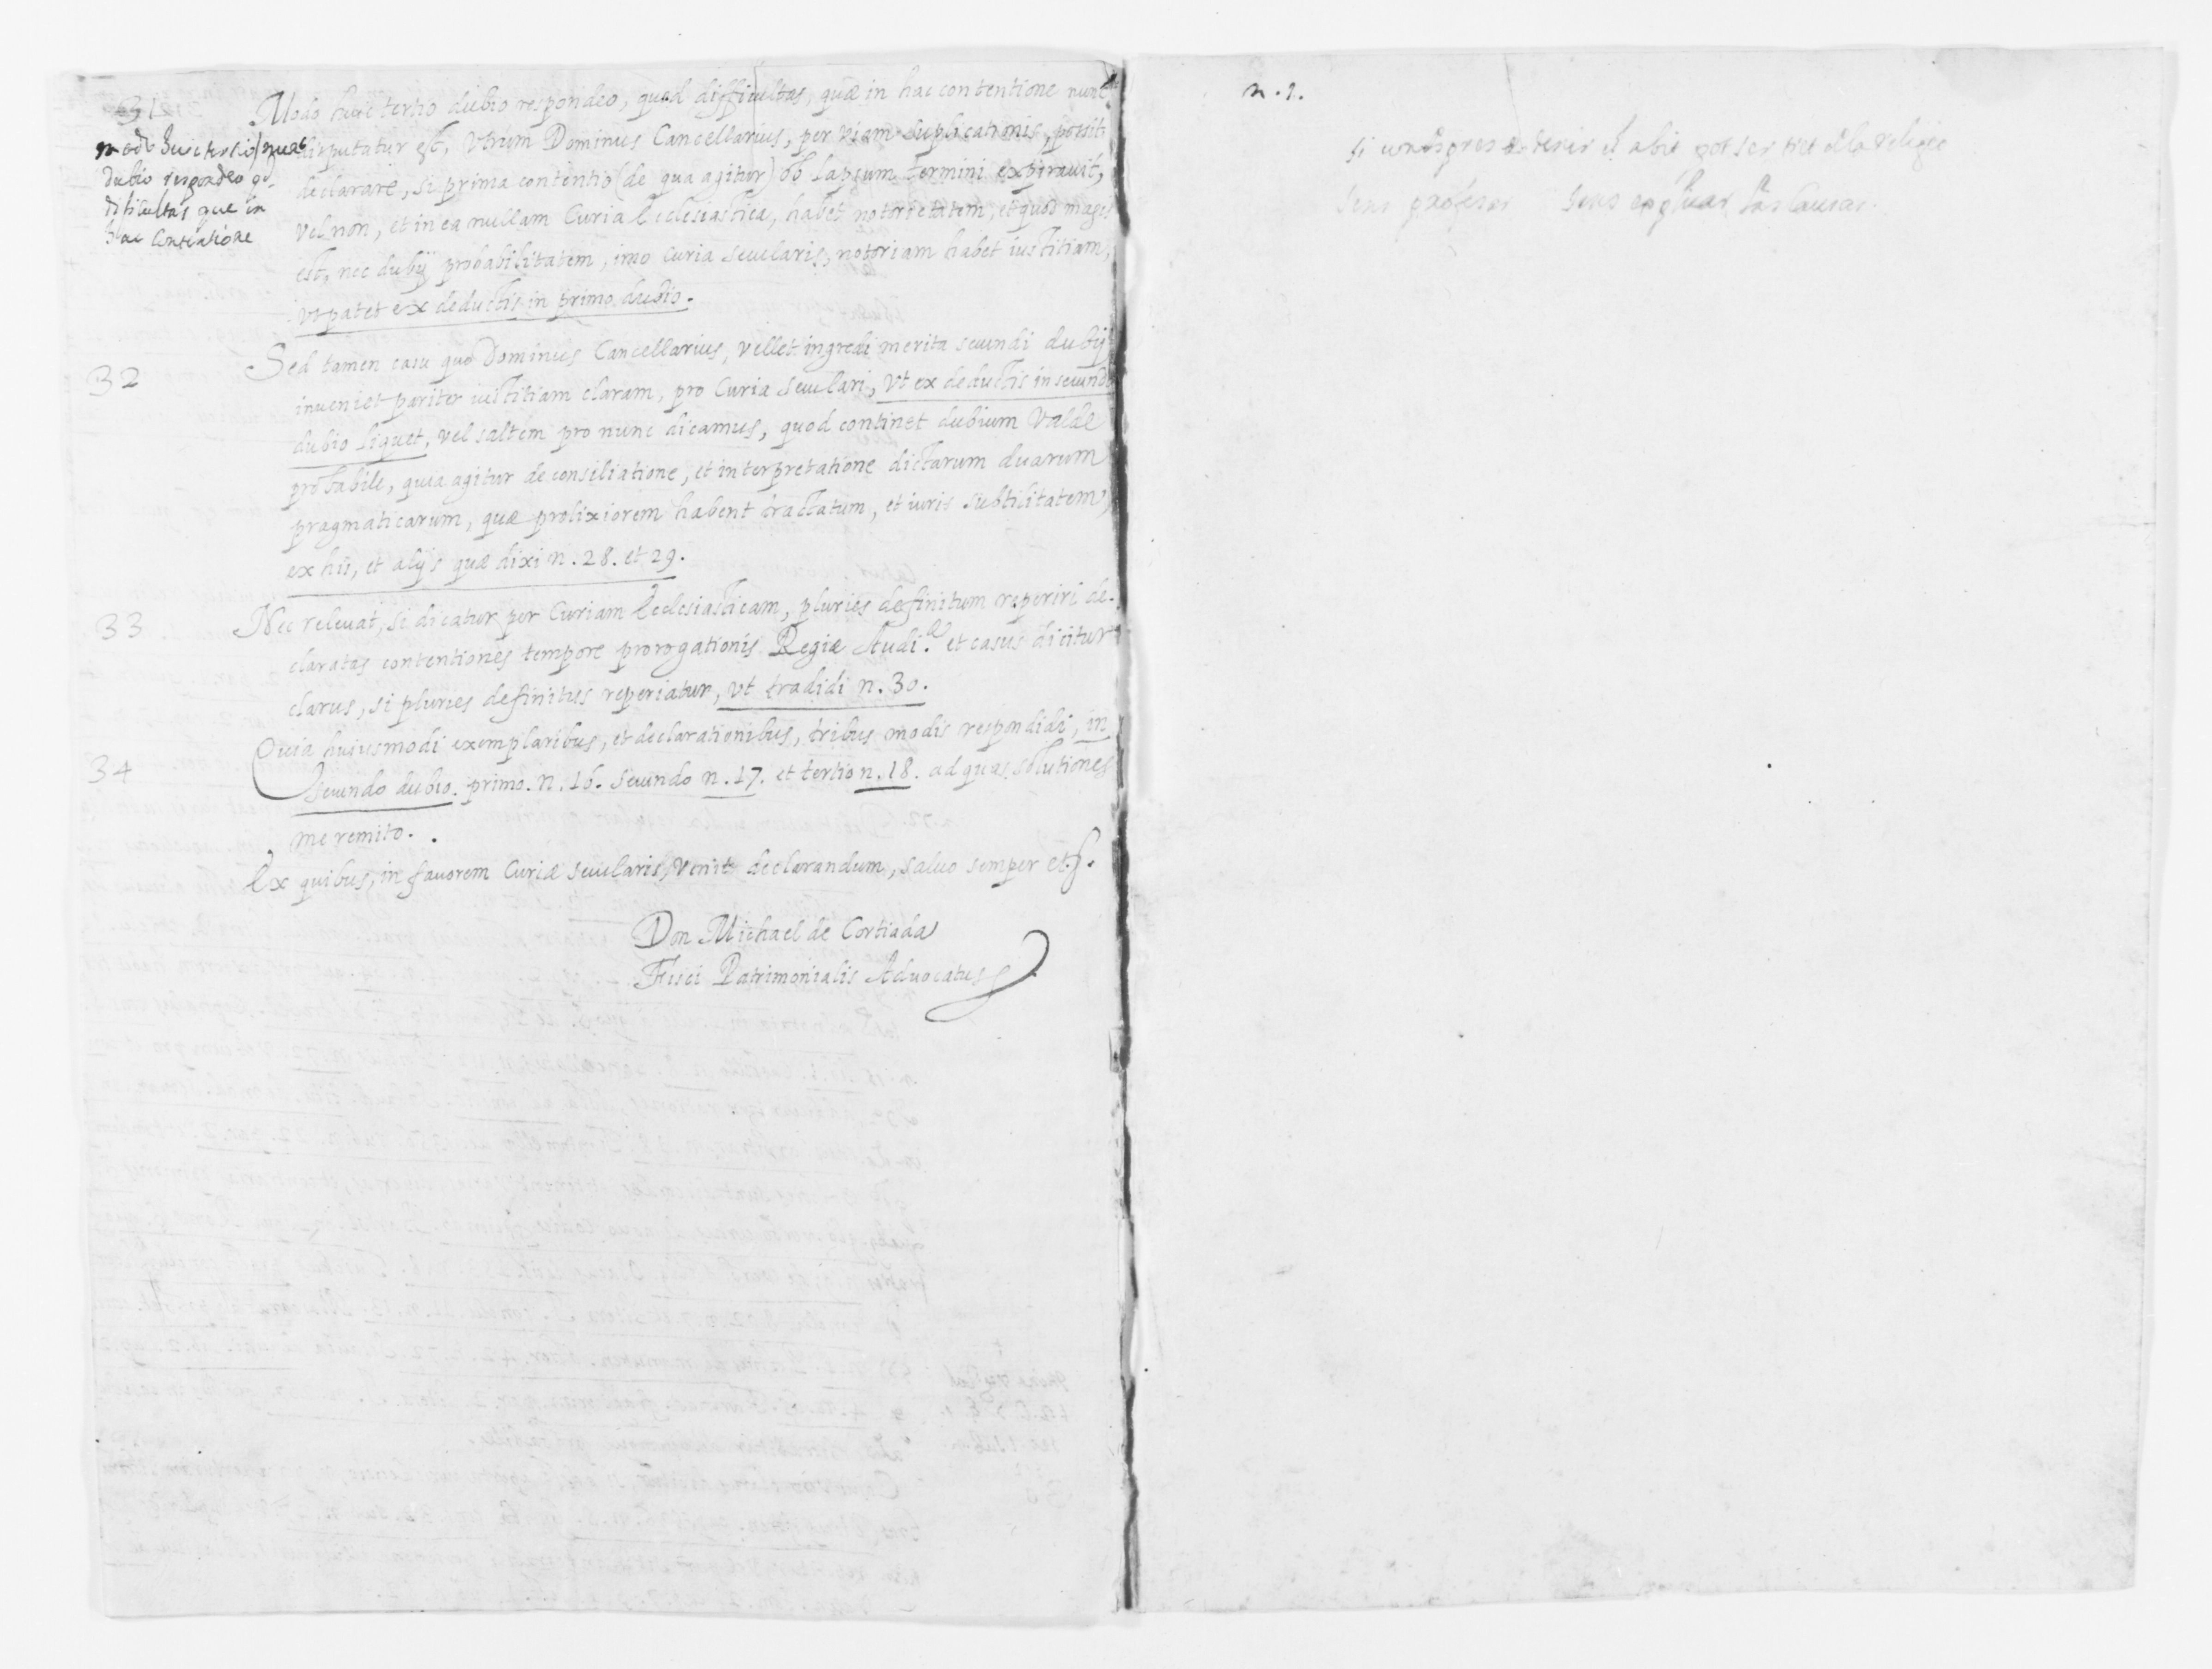 31
Modo huic tertio dubio respondeo, quod difficultas, quæ in hac contentione nunc
disputatur est, Vtrum Dominus Cancellarius, per viam suplicationis, possit
declarare, si prima contentio (de qua agitur) ob lapsum termini expirauit,
vel non, et in ea nullam Curia Ecclesiastica, habet notorietatem, et quod magis
est, nec dubij probabilitatem, imo Curia secularis, notoriam habet iustitiam,
vt patet ex deductis in primo dubio.
modo huic tertio
dubio respondeo qd
dificultas que in
hac Contentione
32
Sed tamen casu quo Dominus Cancellarius, vellet ingredi merita secundi dubij
inueniet pariter iustitiam claram, pro Curia seculari, vt ex deductis in secundo
dubio liquet, vel saltem pro nunc dicamus, quod continet dubium valde
probabile, quia agitur de consiliatione, et interpretatione dictarum duarum
pragmaticarum, quæ prolixiorem habent tractatum, et iuris subtilitatem,
ex his, et alijs quæ dixi n. 28. et 29.
33
Nec releuat, si dicatur per Curiam Ecclesiasticam, pluries definitum reperiri de-
claratas contentiones tempore prorogationis Regiæ Audi.æ et casus dicitur
clarus, si pluries definitus reperiatur, vt tradidi n. 30.
34
Quia huiusmodi exemplaribus, et declarationibus, tribus modis respondidi, in
secundo dubio. primo. n. 16. secundo n. 17. et tertio n. 18. ad quas solutiones
me remito.
Ex quibus, in fauorem Curiæ secularis, venit declarandum, saluo semper et.
Don Michael de Cortiada
Fisci Patrimonialis Aduocatus
n. 1.
si
abit pot ser tret de la religio
sens sens las Causas.